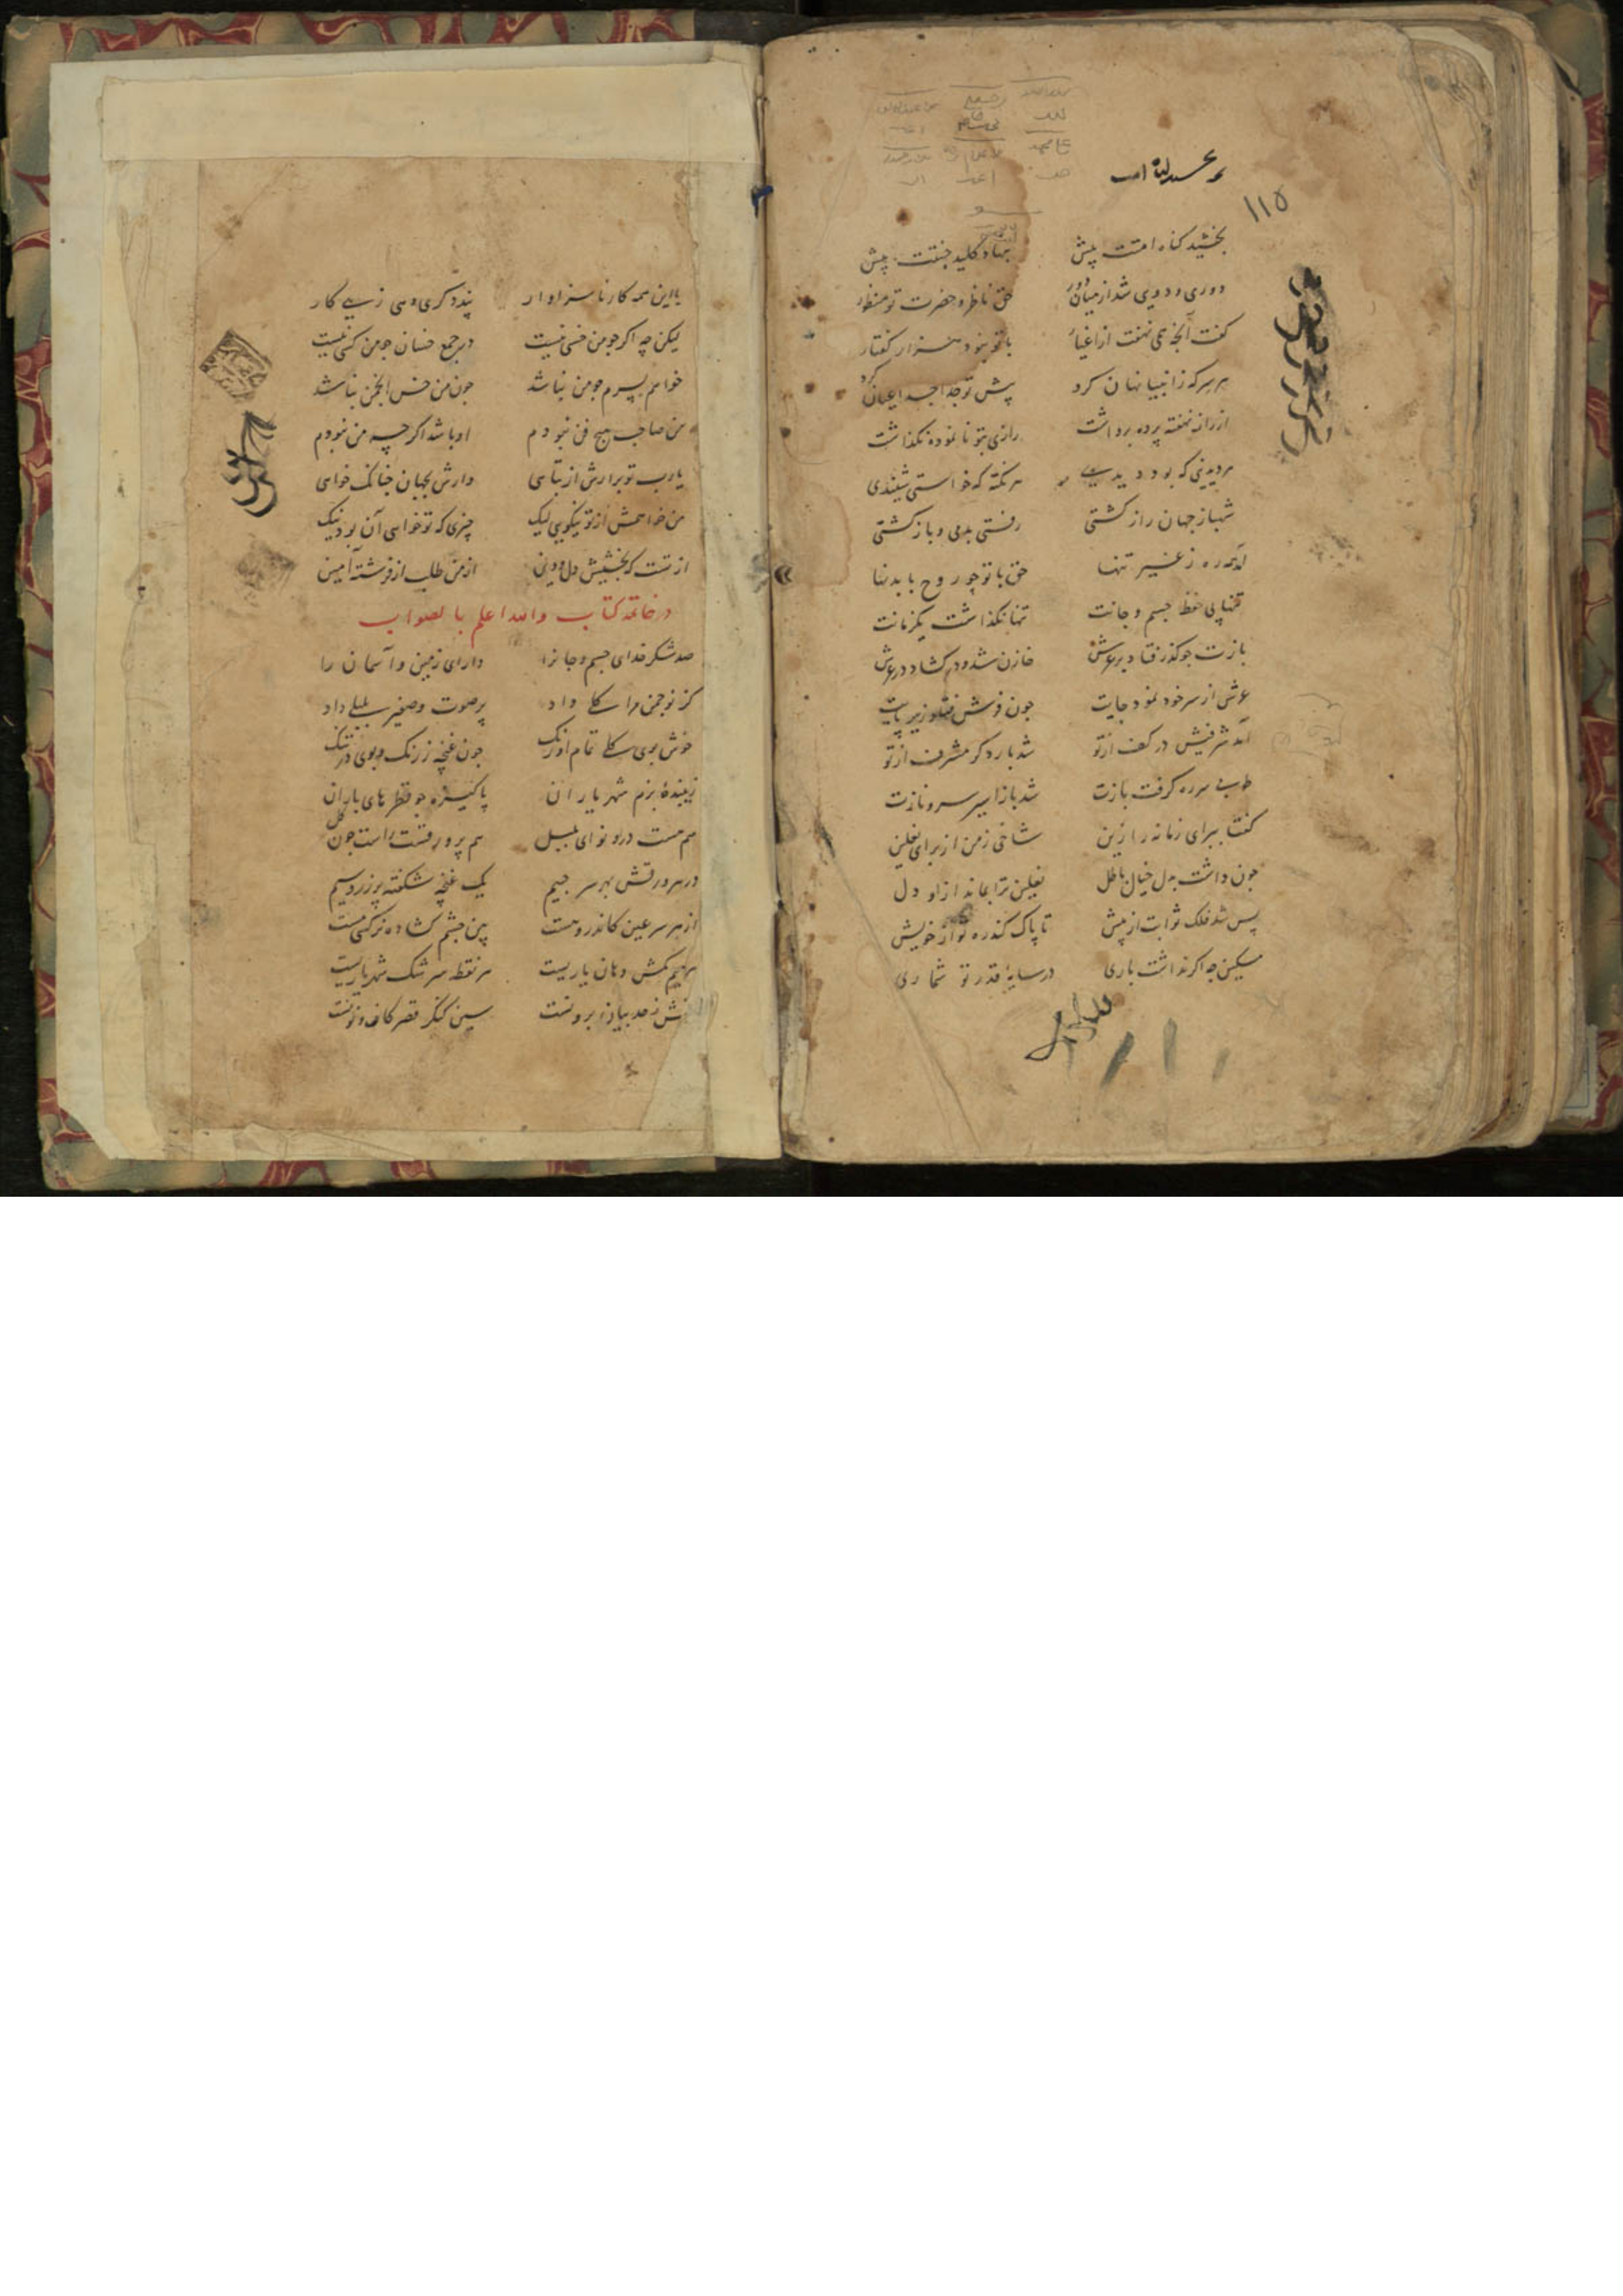 ۱۱۵
بخشید کناه امتت پیش نهاد کلید جنتت پیش
دوری و دویی شد از میان دور حق ناظر و حضرت تو منظور
کفت آنچه همی نهفت از اغیار با تو بنود هزار کفتار
هر سر که ز انبیا نهان کرد پیش تو جدا جدا عیان کرد
از راز نهفته پرده برداشت رازی بتو نانموده نکذاشت
هر دیدنی که بود دیدی هر نکته که خواستی شنیدی
شهباز جهان راز کشتی رفتی بدمی و باز کشتی
آمد همه ره ز غیر تنها حق با تو چو روح با بدنها
تنها پی حفظ جسم و جانت تنها نکذاشت یکزمانت
بازت جو کذر فتاد بر عرش خازن شد و در کشاد در عرش
عرش از سر خود نمود جایت جون فرش فتاد زیر پایت
آمد شرفیش در کف از تو شد بار دکر مشرف از تو
طوبی سر ره کرفت بازت شد باز اسیر سرو نازت
کفتا ببرای زمانه را زین شاخی ز من از برای نعلین
جون داشت بدل خیال باطل نعلین ترا بماند ازاو دل
پس شد فلک ثوابت از پیش تا پاک کند ره تو از خویش
مسکین جه اکر نداشت باری در سایهٔ قدر تو شماری
با این همه کار ناسزاوار پند دکری دهی زهی کار
لیکن چه اکر جو من خسی نیست در جمع خسان جو من کسی نیست
خواهم پسرم جو من نباشد جون من خس انجمن نباشد
من صاحب هیچ فن نبودم او باشد اکر چه من نبودم
یارب تو برآرش از تباهی دارش بجهان چنانک خواهی
من خواهمش از تو نیکویی لیک چیزی که تو خواهی آن بود نیک
از تست که بخشیش دل و دین از من طلب از فرشته آمین
در خاتمه کتاب والله اعلم بالصواب
صد شکر خدای جسم و جانرا دارای زمین و آسمان را
کز نو جمن مرا کلی داد پر صوت و صفیر بلبلی داد
خوش بوی کلی تمام اورنک جون غنچه ز رنک و بوی در تنک
زیبندهٔ بزم شهریاران پاکیزه جو قطرهای باران
هم هست درو نوای بلبل هم پر ورقست راست جون کل
در هر ورقش بهر سر جیم یک غنچه شکفته پر زر و سیم
از هر سر عین کاندرو هست بین جشم کشاده نرکسی مست
هر میم کمش دهان یاریست هر نقطه سرشک شهریاریست
سین کنکر قصر کاف و نونست